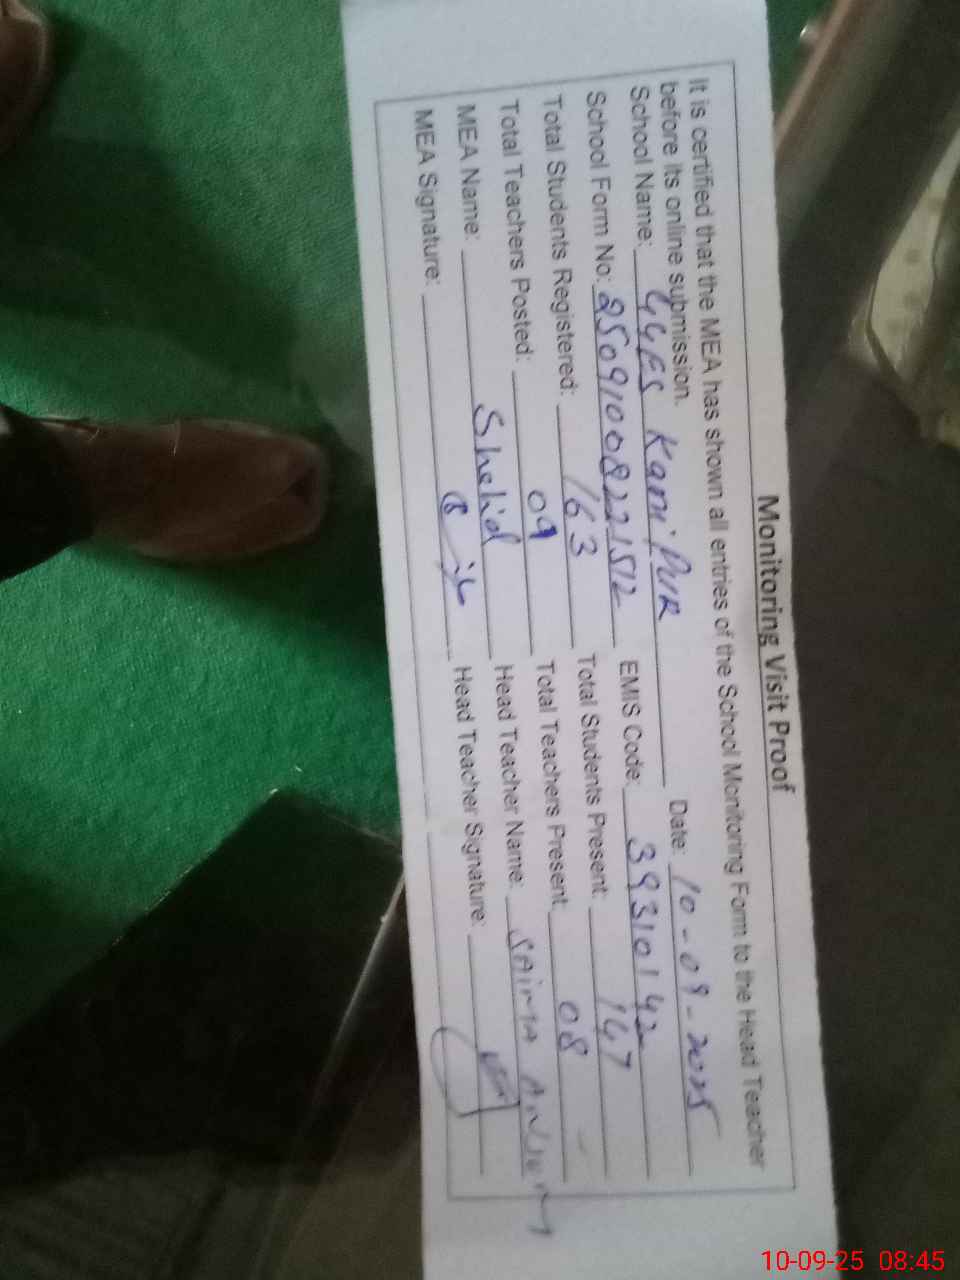 Monitoring Visit Proof
It is certified that the MEA has shown all entries of the School Monitoring Form to the Head Teacher
before its online submission.
School Name: GGES Karni Pur Date: 10-09-2025
School Form No: 25091008221512 EMIS Code: 39310142
Total Students Registered: 163 Total Students Present: 147
Total Teachers Posted: 09 Total Teachers Present: 08
MEA Name: Shahid Head Teacher Name: SAIMA ANJUM
MEA Signature: Head Teacher Signature:
10-09-25 08:45